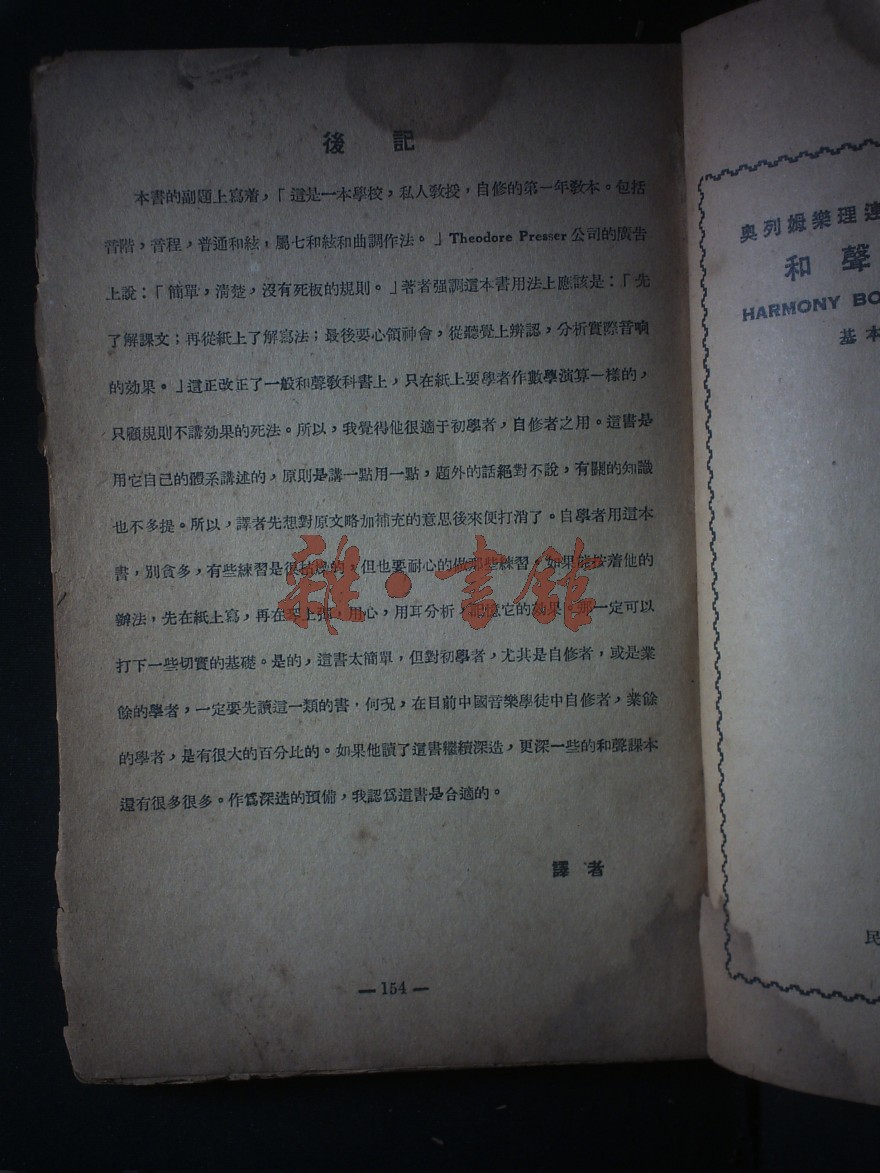 後 記
本書的副題上寫着，「這是一本學校，私人教授，自修的第一年教本。包括
音階，音程，普通和絃，屬七和絃和曲調作法。」Theodore Presser 公司的廣告
上說：「簡單，清楚，沒有死板的規則。」著者强調這本書用法上應該是：「先
了解課文；再從紙上了解寫法；最後要心領神會，從聽覺上辨認，分析實際音响
的效果。」這正改正了一般和聲教科書上，只在紙上要學者作數學演算一樣的，
只顧規則不講效果的死法。所以，我覺得他很適于初學者，自修者之用。這書是
用它自己的體系講述的，原則是講一點用一點，題外的話絕對不說，有關的知識
也不多提。所以，譯者先想對原文略加補充的意思後來便打消了。自學者用這本
書，別貪多，有些練習是很枯燥的，但也要耐心的做那些練習，如果能按着他的
辦法，先在紙上寫，再在琴上彈，用心，用耳分析，記憶它的效果。那一定可以
打下一些切實的基礎。是的，這書太簡單，但對初學者，尤其是自修者，或是業
餘的學者，一定要先讀這一類的書，何況，在目前中國音樂學徒中自修者，業餘
的學者，是有很大的百分比的。如果他讀了這書繼續深造，更深一些的和聲課本
還有很多很多。作爲深造的預備，我認爲這書是合適的。
譯 者
— 154 —
雜·書館
奧列姆樂理連
和聲
HARMONY BO
基本
民